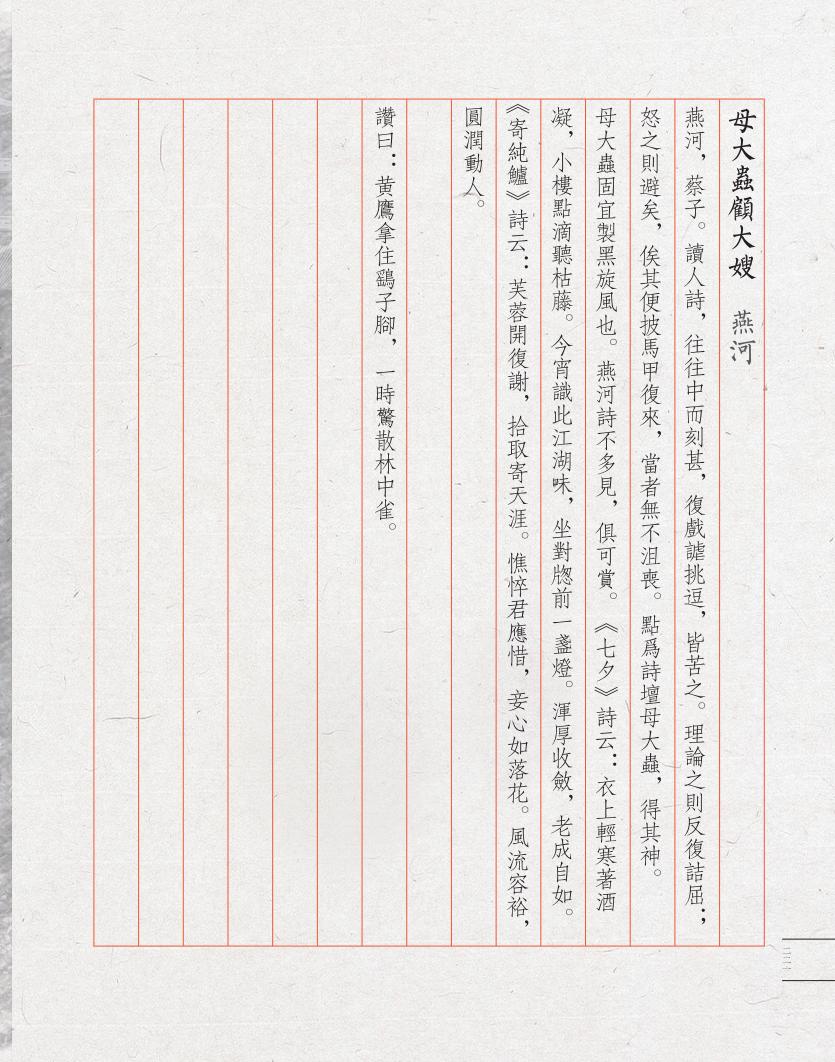 母大蟲顧大嫂　燕河
燕河，蔡子。讀人詩，往往中而刻甚，復戲謔挑逗，皆苦之。理論之則反復詰屈；
怒之則避矣，俟其便披馬甲復來，當者無不沮喪。點爲詩壇母大蟲，得其神。
母大蟲固宜製黑旋風也。燕河詩不多見，俱可賞。《七夕》詩云：衣上輕寒著酒
凝，小樓點滴聽枯藤。今宵識此江湖味，坐對牎前一盞燈。渾厚收斂，老成自如。
《寄純鱸》詩云：芙蓉開復謝，拾取寄天涯。憔悴君應惜，妾心如落花。風流容裕，
圓潤動人。
讚曰：黃鷹拿住鷂子腳，一時驚散林中雀。